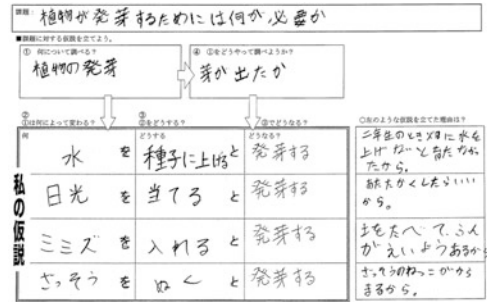 課題: 植物が発芽するためには何が必要か
■課題に対する仮説を立てよう。
① 何について調べる?
植物の発芽
④ ①をどうやって調べようか?
芽が出たか
②
①は何によって変わる?
③
②をどうする?
①はどうなる?
私の仮説
何 どうする どうなる?
水 を 種子に上げる と 発芽する
日光 を 当てる と 発芽する
ミミズ を 入れる と 発芽する
ざっそう を ぬく と 発芽する
○左のような仮説を立てた理由は?
二年生のとき
に水を
上げないと育たなかっ
たから。
あたたかくしたらいい
から。
土をたべて、ふん
がえいようあるから
ざっそうのねっこがから
まるから。